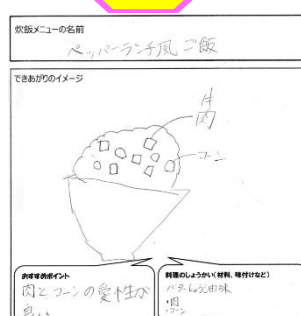 炊飯メニューの名前
ペッパーランチ風ご飯
できあがりのイメージ
牛
肉
コーン
おすすめポイント
肉とコーンの愛性が
良い
料理のしょうかい(材料、味付けなど)
バターしょう油味
・肉
・コーン